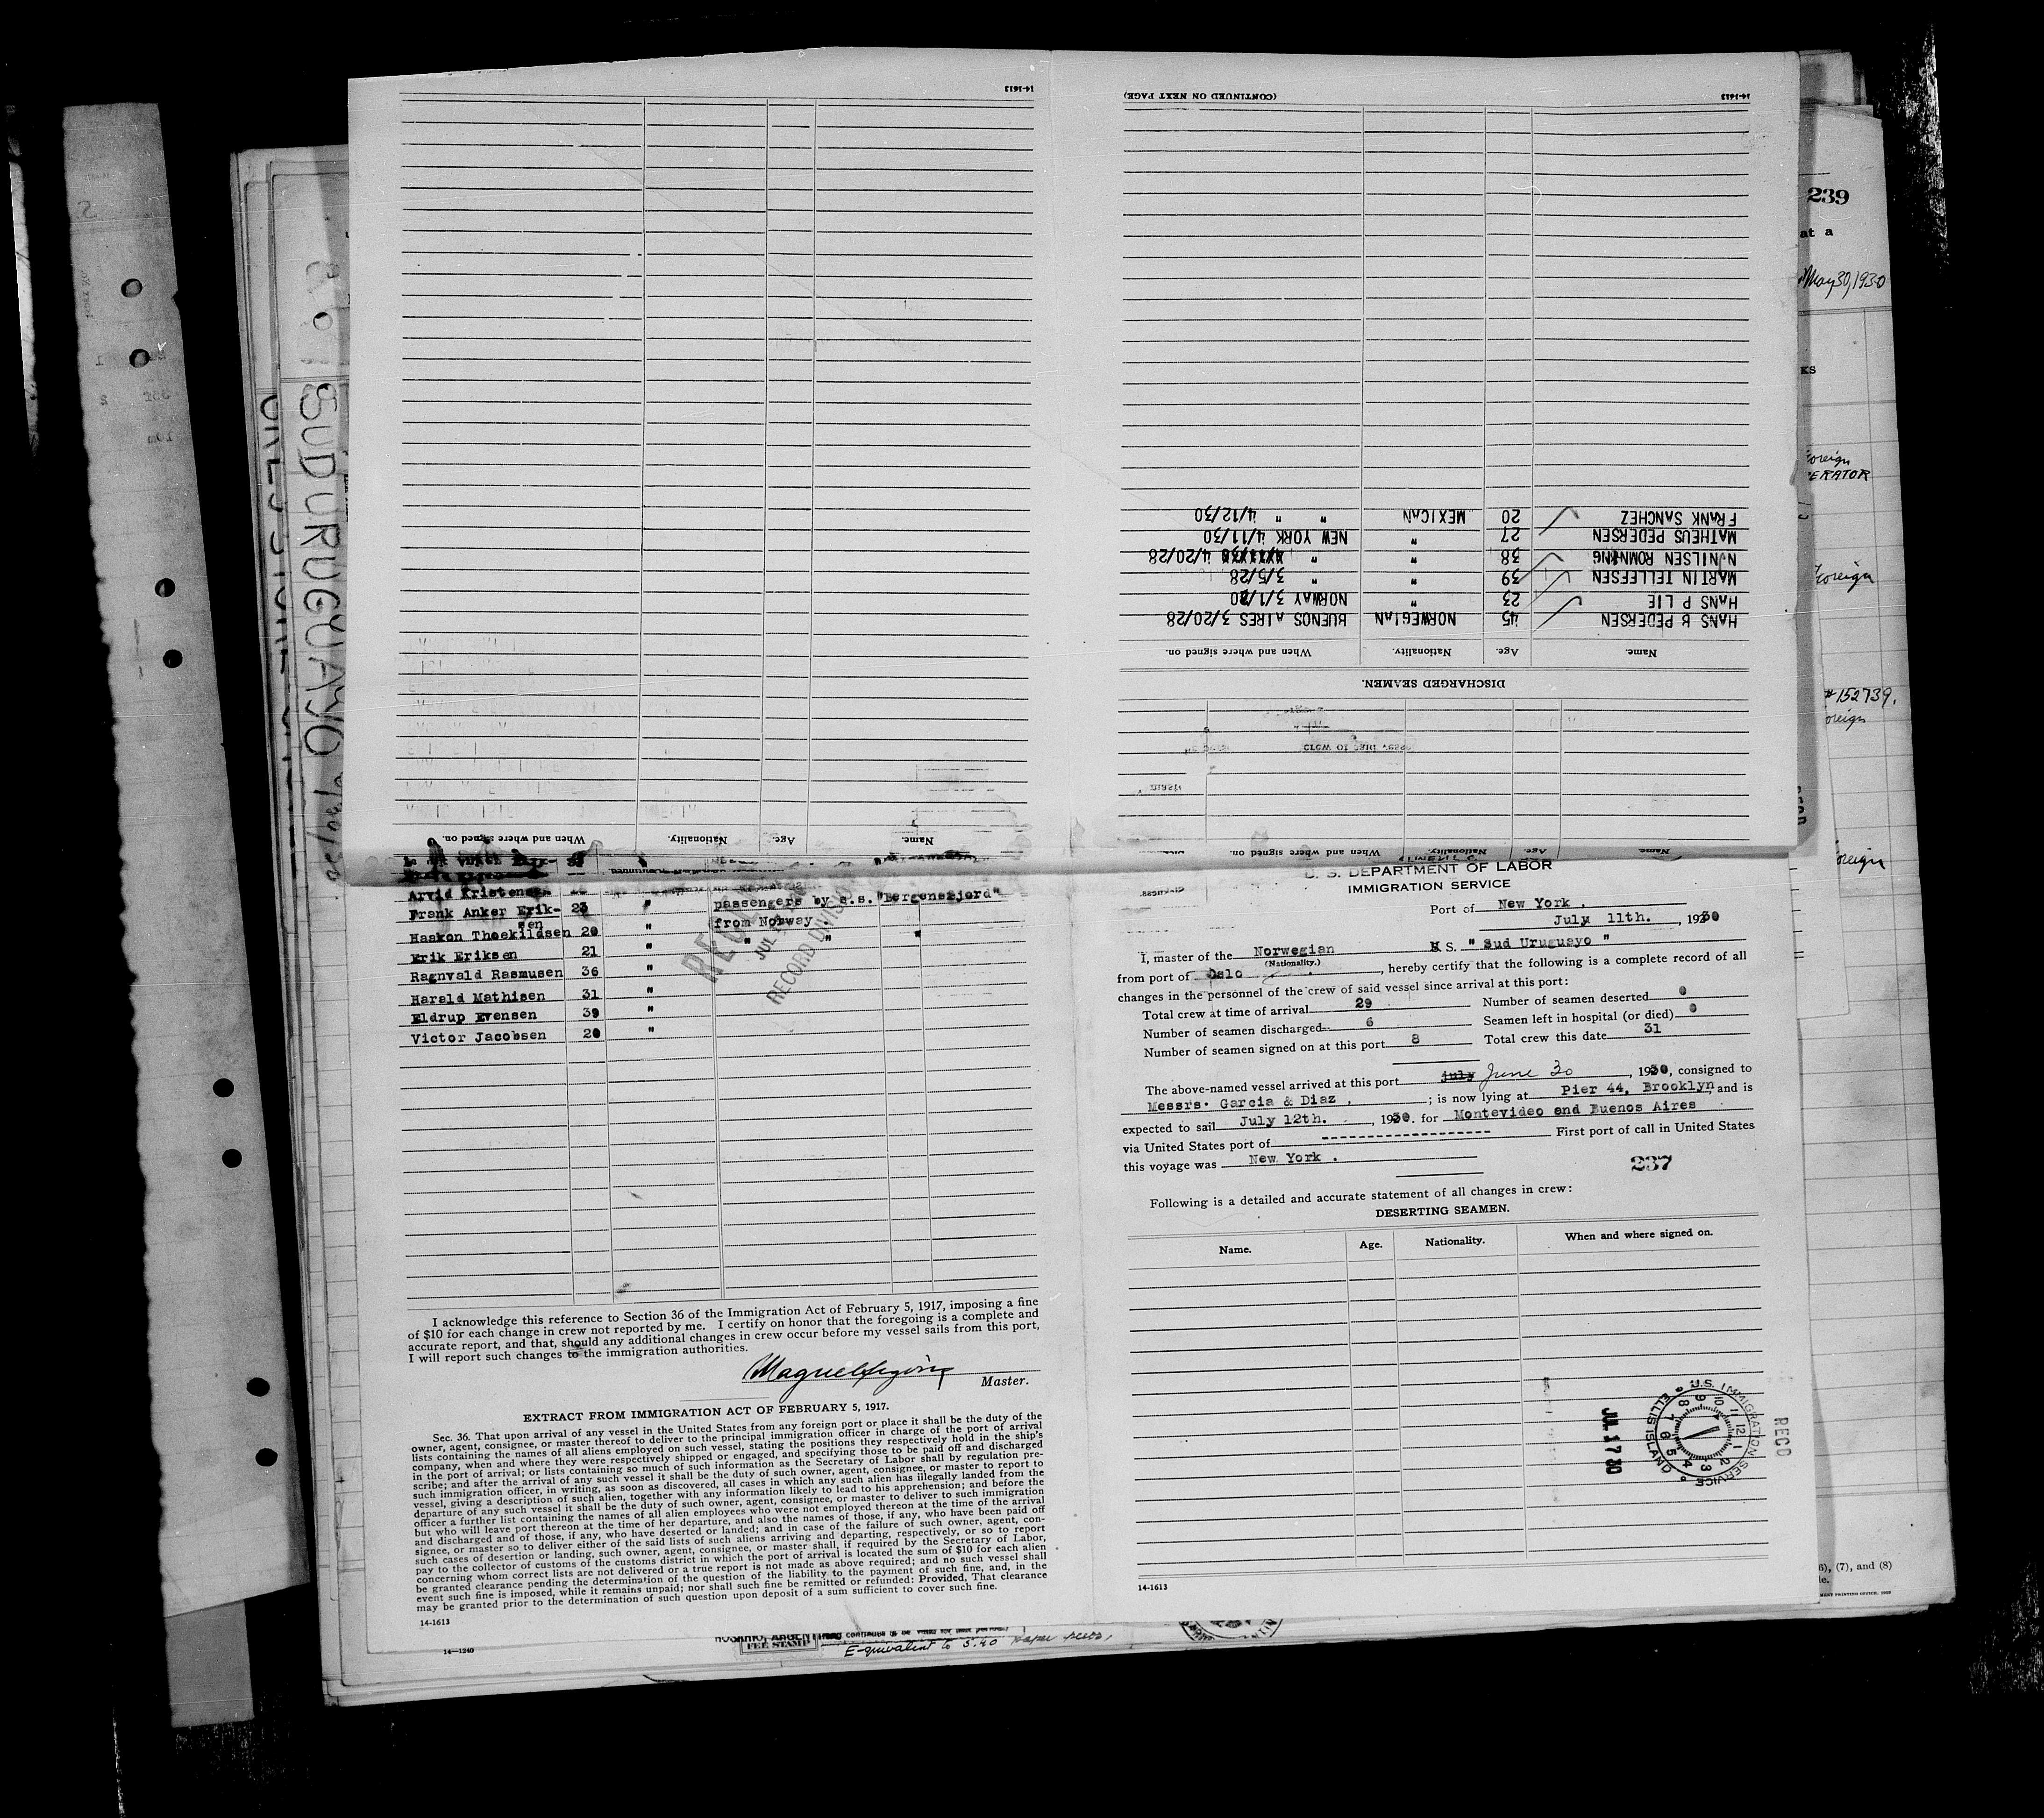 14-1613
When and where signed on.
Nationality.
Age.
Name.
14-1613
(CONTINUED ON NEXT PAGE)
DISCHARGED SEAMEN.
Name. Age. Nationality. When and where signed on.
HANS B PEDERSEN 45 NORWEGIAN BUENOS AIRES 3/20/28
HANS P LIE 23 " NORWAY
MARTIN TELLEFSEN 39 " " 3/5/28
N, NILSEN ROMNING 38 " " 4/20/28
MATHEUS PEDERSEN 27 " NEW YORK 4/11/30
FRANK SANCHEZ 20 MEXICAN " " 4/12/30
Name. Age. Nationality. When and where signed on.
Arvid
Frank Anker Erik-sen 23 " passengers by s.s. "Bergensfjord"
Haakon Thoekildsen 20 " from Norway
Erik Eriksen 21 " " " "
Ragnvald Rasmusen 36 "
Harald Mathisen 31 "
Eldrup Evensen 39 "
Victor Jacobsen 20 "
RECORD DIVISION
I acknowledge this reference to Section 36 of the Immigration Act of February 5, 1917, imposing a fine
of $10 for each change in crew not reported by me. I certify on honor that the foregoing is a complete and
accurate report, and that, should any additional changes in crew occur before my vessel sails from this port,
I will report such changes to the immigration authorities.
Master.
EXTRACT FROM IMMIGRATION ACT OF FEBRUARY 5, 1917.
Sec. 36. That upon arrival of any vessel in the United States from any foreign port or place it shall be the duty of the
owner, agent, consignee, or master thereof to deliver to the principal immigration officer in charge of the port of arrival
lists containing the names of all aliens employed on such vessel, stating the positions they respectively hold in the ship's
company, when and where they were respectively shipped or engaged, and specifying those to be paid off and discharged
in the port of arrival; or lists containing so much of such information as the Secretary of Labor shall by regulation pre-
scribe; and after the arrival of any such vessel it shall be the duty of such owner, agent, consignee, or master to report to
such immigration officer, in writing, as soon as discovered, all cases in which any such alien has illegally landed from the
vessel, giving a description of such alien, together with any information likely to lead to his apprehension; and before the
departure of any such vessel it shall be the duty of such owner, agent, consignee, or master to deliver to such immigration
officer a further list containing the names of all alien employees who were not employed thereon at the time of the arrival
but who will leave port thereon at the time of her departure, and also the names of those, if any, who have been paid off
and discharged and of those, if any, who have deserted or landed; and in case of the failure of such owner, agent, con-
signee, or master so to deliver either of the said lists of such aliens arriving and departing, respectively, or so to report
such cases of desertion or landing, such owner, agent, consignee, or master shall, if required by the Secretary of Labor,
pay to the collector of customs of the customs district in which the port of arrival is located the sum of $10 for each alien
concerning whom correct lists are not delivered or a true report is not made as above required; and no such vessel shall
be granted clearance pending the determination of the question of the liability to the payment of such fine, and, in the
event such fine is imposed, while it remains unpaid; nor shall such fine be remitted or refunded: Provided, That clearance
may be granted prior to the determination of such question upon deposit of a sum sufficient to cover such fine.
14-1613
14—1240
FEE STAMP
Equivalent to 5.40 paper pesos,
U. S. DEPARTMENT OF LABOR
IMMIGRATION SERVICE
Port of New York .
July 11th. , 1930
I, master of the Norwegian M S. " Sud Uruguayo "
(Nationality.)
from port of Oslo , hereby certify that the following is a complete record of all
changes in the personnel of the crew of said vessel since arrival at this port:
Total crew at time of arrival 29 Number of seamen deserted 0
Number of seamen discharged 6 Seamen left in hospital (or died) 0
Number of seamen signed on at this port 8 Total crew this date 31
The above-named vessel arrived at this port July June 30 , 1930, consigned to
Messrs. Garcia & Diaz , ; is now lying at Pier 44, Brooklyn, and is
expected to sail July 12th. , 1930. for Montevideo and Buenos Aires
via United States port of ---------------- First port of call in United States
this voyage was New York .
237
Following is a detailed and accurate statement of all changes in crew:
DESERTING SEAMEN.
Name. Age. Nationality. When and where signed on.
U.S. IMMIGRATION SERVICE ELLIS ISLAND
JUL 17 30
RECD
14-1613
SUD URUGUAYO
239
at a
May 30, 1930
KS
Foreign
ERATOR
Foreign
#152739.
oreign
oreign
6), (7), and (8)